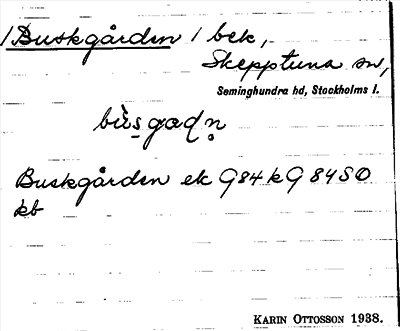 /Buskgården / bek,
Skepptuna sn,
Seminghundra hd, Stockholms l.
bùsgaḍn̥
Buskgården ek G84k G84SO
kb
KARIN OTTOSSON 1938.